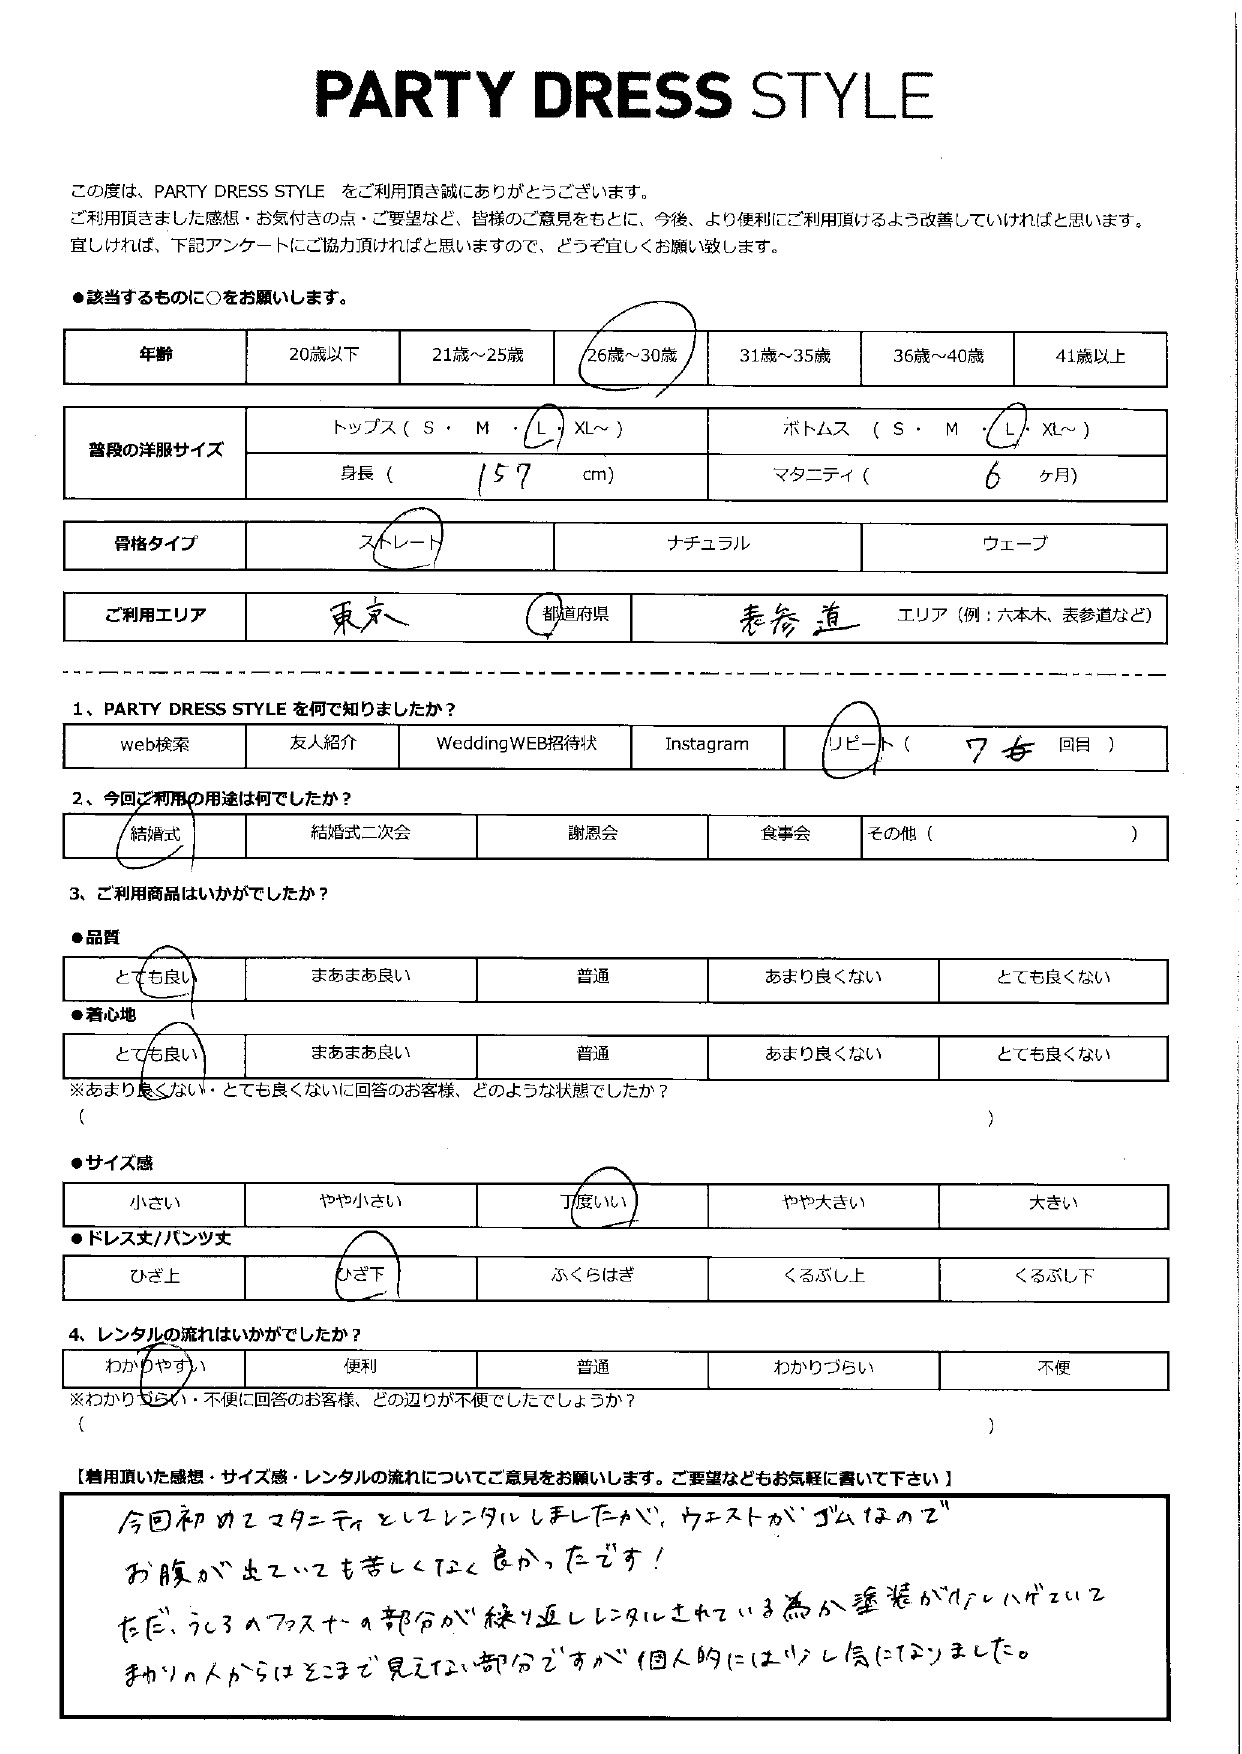 PARTY DRESS STYLE
この度は、PARTY DRESS STYLE をご利用頂き誠にありがとうございます。
ご利用頂きました感想・お気付きの点・ご要望など、皆様のご意見をもとに、今後、より便利にご利用頂けるよう改善していければと思います。
宜しければ、下記アンケートにご協力頂ければと思いますので、どうぞ宜しくお願い致します。
●該当するものに○をお願いします。
年齢 20歳以下 21歳～25歳 26歳～30歳 31歳～35歳 36歳～40歳 41歳以上
普段の洋服サイズ トップス ( S ・ M ・ L ・ XL～ ) ボトムス ( S ・ M ・ L ・ XL～ )
身長 ( 157 cm) マタニティ ( 6 ヶ月)
骨格タイプ ストレート ナチュラル ウェーブ
ご利用エリア 東京 都道府県 表参道 エリア（例：六本木、表参道など）
1、PARTY DRESS STYLE を何で知りましたか？
web検索 友人紹介 WeddingWEB招待状 Instagram リピート ( 7 回目 )
2、今回ご利用の用途は何でしたか？
結婚式 結婚式二次会 謝恩会 食事会 その他 ( )
3、ご利用商品はいかがでしたか？
●品質
とても良い まあまあ良い 普通 あまり良くない とても良くない
●着心地
とても良い まあまあ良い 普通 あまり良くない とても良くない
※あまり良くない・とても良くないに回答のお客様、どのような状態でしたか？
( )
●サイズ感
小さい やや小さい 丁度いい やや大きい 大きい
●ドレス丈/パンツ丈
ひざ上 ひざ下 ふくらはぎ くるぶし上 くるぶし下
4、レンタルの流れはいかがでしたか？
わかりやすい 便利 普通 わかりづらい 不便
※わかりづらい・不便に回答のお客様、どの辺りが不便でしたでしょうか？
( )
【着用頂いた感想・サイズ感・レンタルの流れについてご意見をお願いします。ご要望などもお気軽に書いて下さい】
今回初めてマタニティとしてレンタルしましたが、ウエストがゴムなので
お腹が出ていても苦しくなく良かったです！
ただ、うしろのファスナーの部分が繰り返しレンタルされている為か塗装が少しハゲていて
まわりの人からはそこまで見えない部分ですが個人的には少し気になりました。